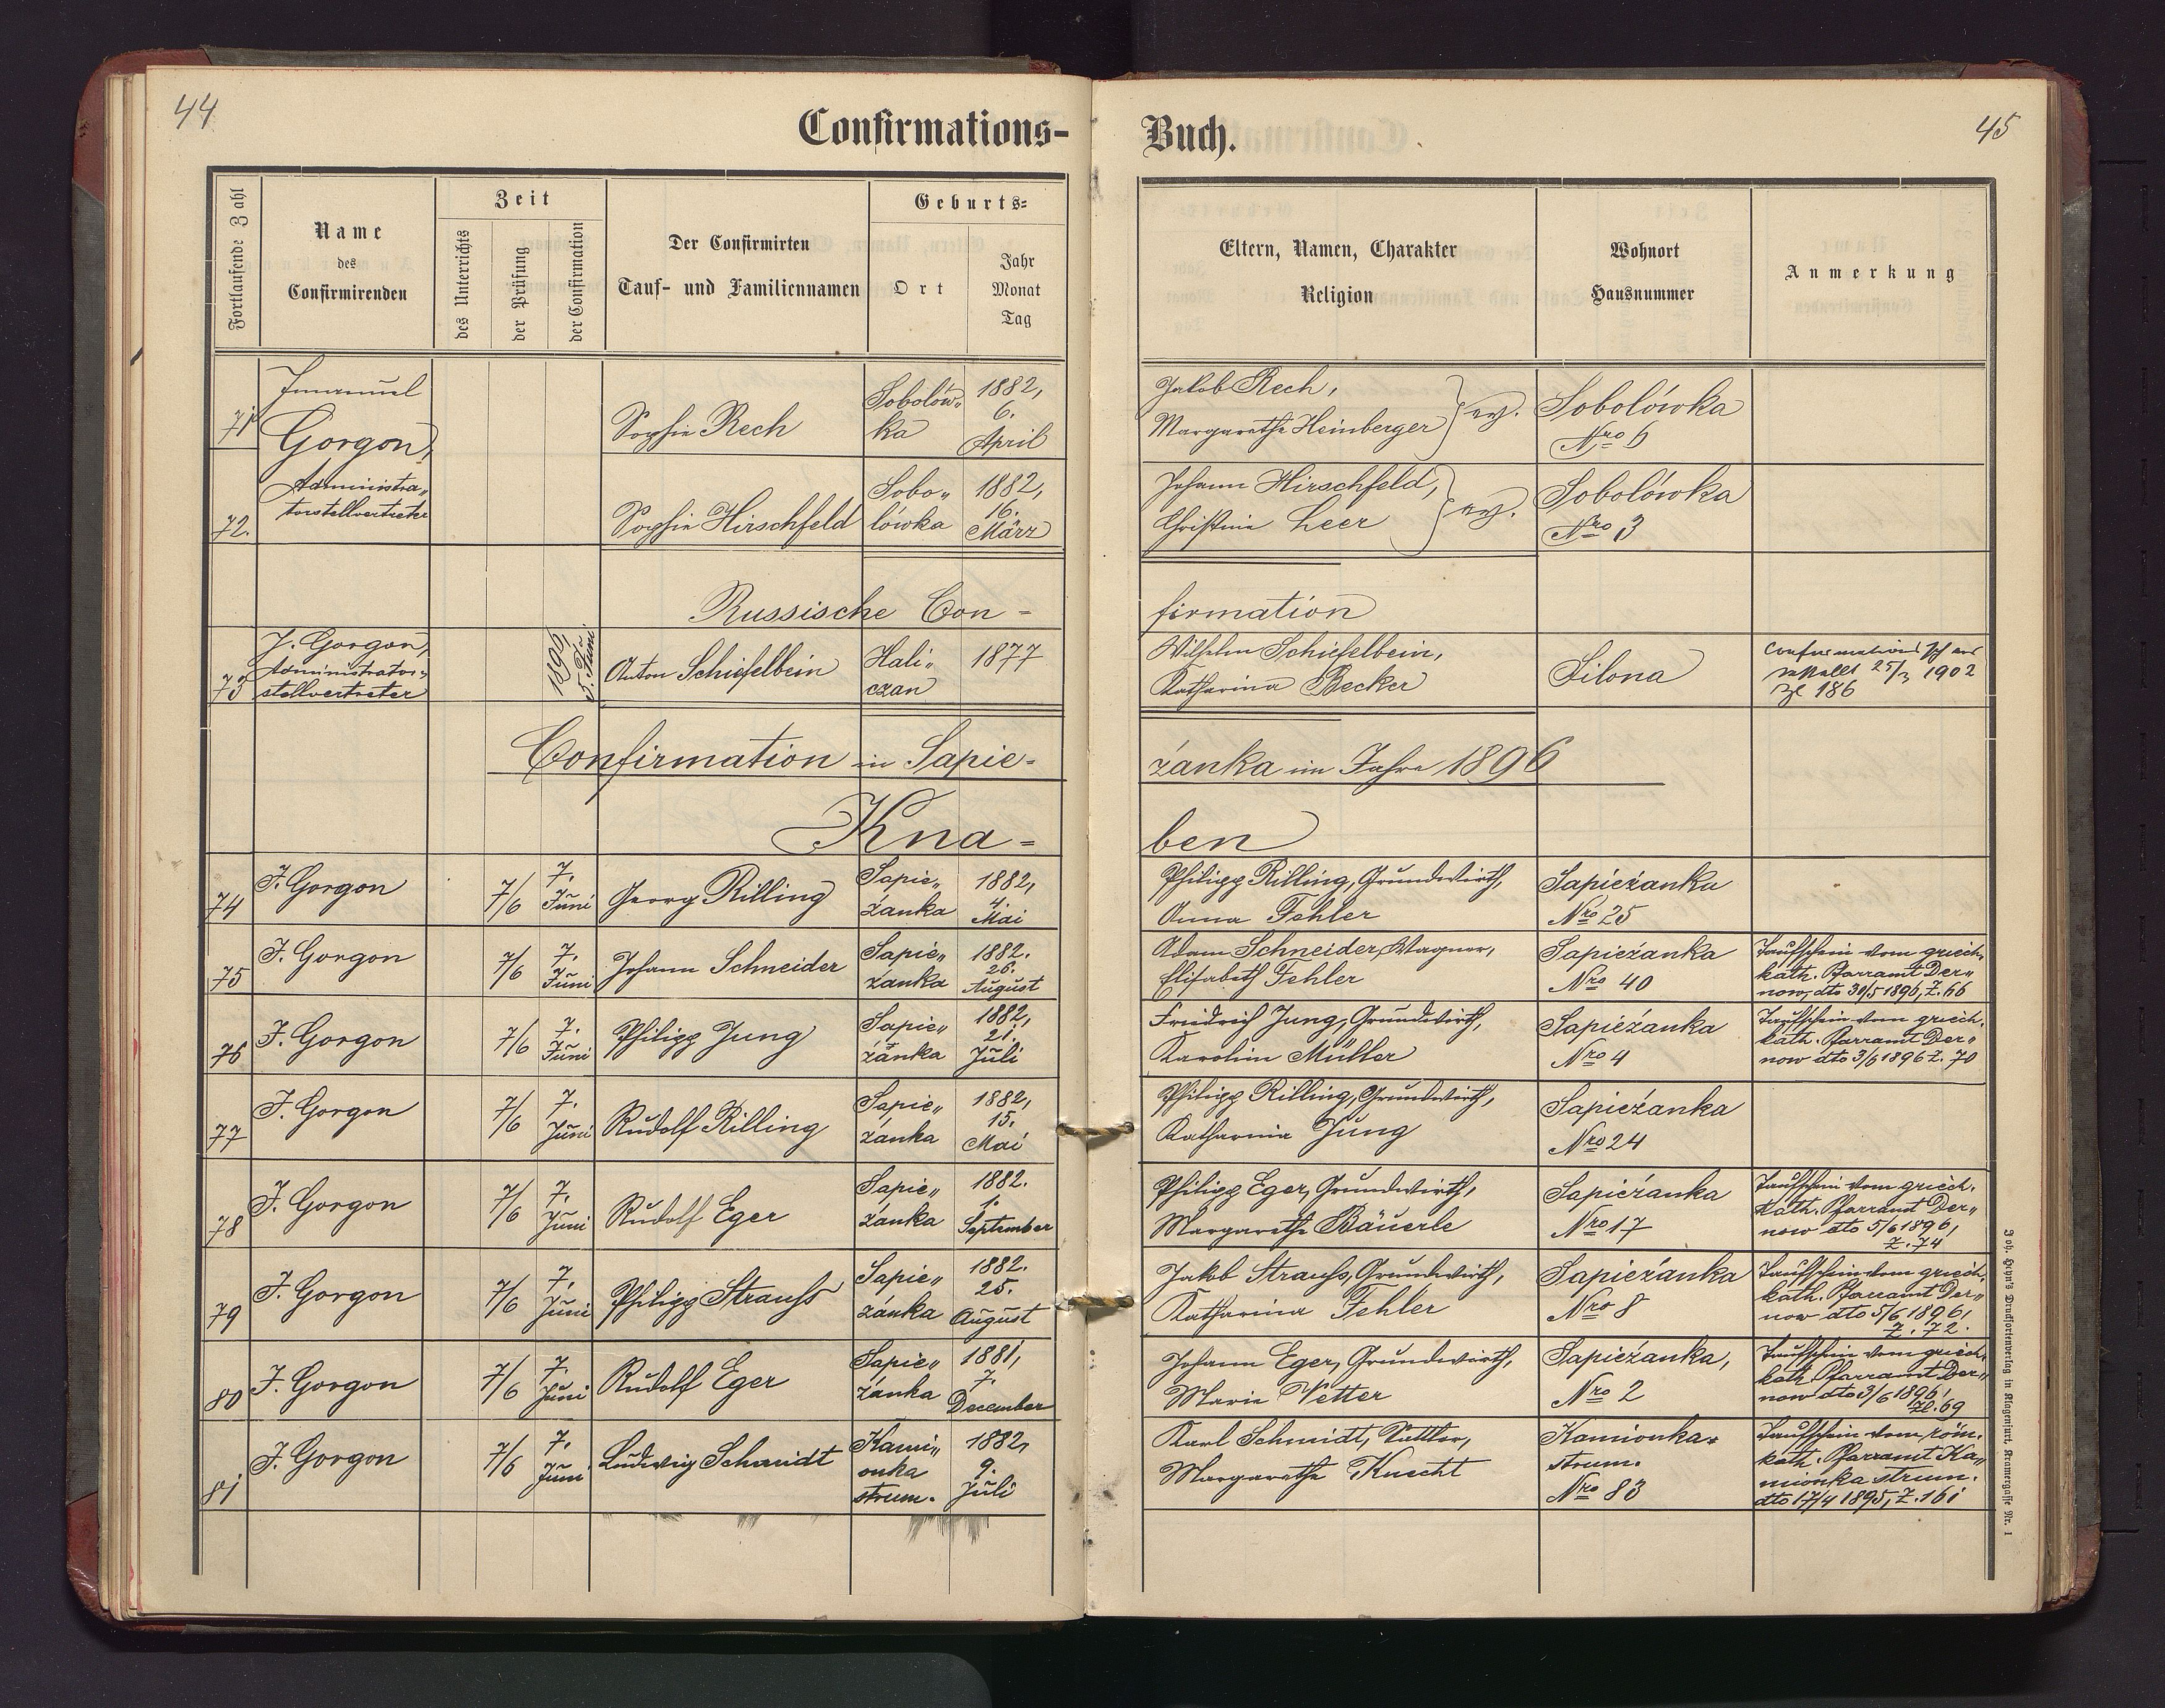 44
Confirmations-
Buch.
45
Fortlaufende Zahl
Name
des
Confirmirenden
Zeit
des Unterrichts
der Prüfung
der Confirmation
Der Confirmirten
Tauf- und Familiennamen
Geburts-
Ort
Jahr
Monat
Tag
Eltern, Namen, Charakter
Religion
Wohnort
Hausnummer
Anmerkung
71
Immanuel
Gorgon,
Sophie Rech
Sobolów-
ka
1882,
6.
April
Jakob Rech,
Margarethe Heinberger
ev.
Sobolówka
Nro 6
72.
Administra-
torstellvertreter
Sophie Hirschfeld
Sobo-
lówka
1882,
16.
März
Johann Hirschfeld,
Christine Leer
ev.
Sobolówka
Nro 3
Russische Con-
firmation
73
J. Gorgon,
Administrator-
stellvertreter
5. Juni
Anton Schiefelbein
Hali-
czan
1877
Wilhelm Schiefelbein,
Katharina Becker
Silona
25/3 1902
Zl 186
Confirmation in Sapie-
żanka im Jahre 1896
Kna-
ben
74
J. Gorgon
7/6
7.
Juni
Georg Rilling
Sapie-
żanka
1882,
4.
Mai
Philipp Rilling, Grundwirth,
Anna Fehler
Sapieżanka
Nro 25
75
J. Gorgon
7/6
7.
Juni
Johann Schneider
Sapie-
żanka
1882.
26.
August
Adam Schneider, Wagner,
Elisabeth Fehler
Sapieżanka
Nro 40
Taufschein vom griech.
kath. Pfarramt Der-
now, dto 30/5 1896, Z. 66
76
J. Gorgon
7/6
7.
Juni
Philipp Jung
Sapie-
żanka
1882,
21.
Juli
Friedrich Jung, Grundwirth,
Karoline Müller
Sapieżanka
Nro 4
Taufschein vom griech.
kath. Pfarramt Der-
now dto 3/6 1896 Z. 70
77
J. Gorgon
7/6
7.
Juni
Rudolf Rilling
Sapie-
żanka
1882,
15.
Mai
Philipp Rilling, Grundwirth,
Katharina Jung
Sapieżanka
Nro 24
78
J. Gorgon
7/6
7.
Juni
Rudolf Eger
Sapie-
żanka
1882.
1.
September
Philipp Eger, Grundwirth,
Margarethe Bäuerle
Sapieżanka
Nro 17
Taufschein vom griech.
kath. Pfarramt Der-
now dto 5/6 1896,
Z. 74
79
J. Gorgon
7/6
7.
Juni
Philipp Strauss
Sapie-
żanka
1882.
25.
August
Jakob Strauss, Grundwirth,
Katharina Fehler
Sapieżanka
Nro 8
Taufschein vom griech.
kath. Pfarramt Der-
now dto 5/6 1896,
Z. 72.
80
J. Gorgon
7/6
7.
Juni
Rudolf Eger
Sapie-
żanka
1881,
7.
December
Johann Eger, Grundwirth,
Marie Vetter
Sapieżanka,
Nro 2
Taufschein vom griech.
kath. Pfarramt Der-
now dto 3/6 1896,
Zl. 69
81
J. Gorgon
7/6
7.
Juni
Ludwig Schmidt
Kami-
onka
strum.
1882,
9.
Juli
Karl Schmidt, Sattler,
Margarethe Knecht
Kamionka-
strum.
Nro 83
Taufschein vom röm.
kath. Pfarramt Ka-
mionka strum.
dto 17/4 1895, Z. 161
Joh. Heyn's Drucksortenverlag in Klagenfurt, Kramergasse Nr. 1